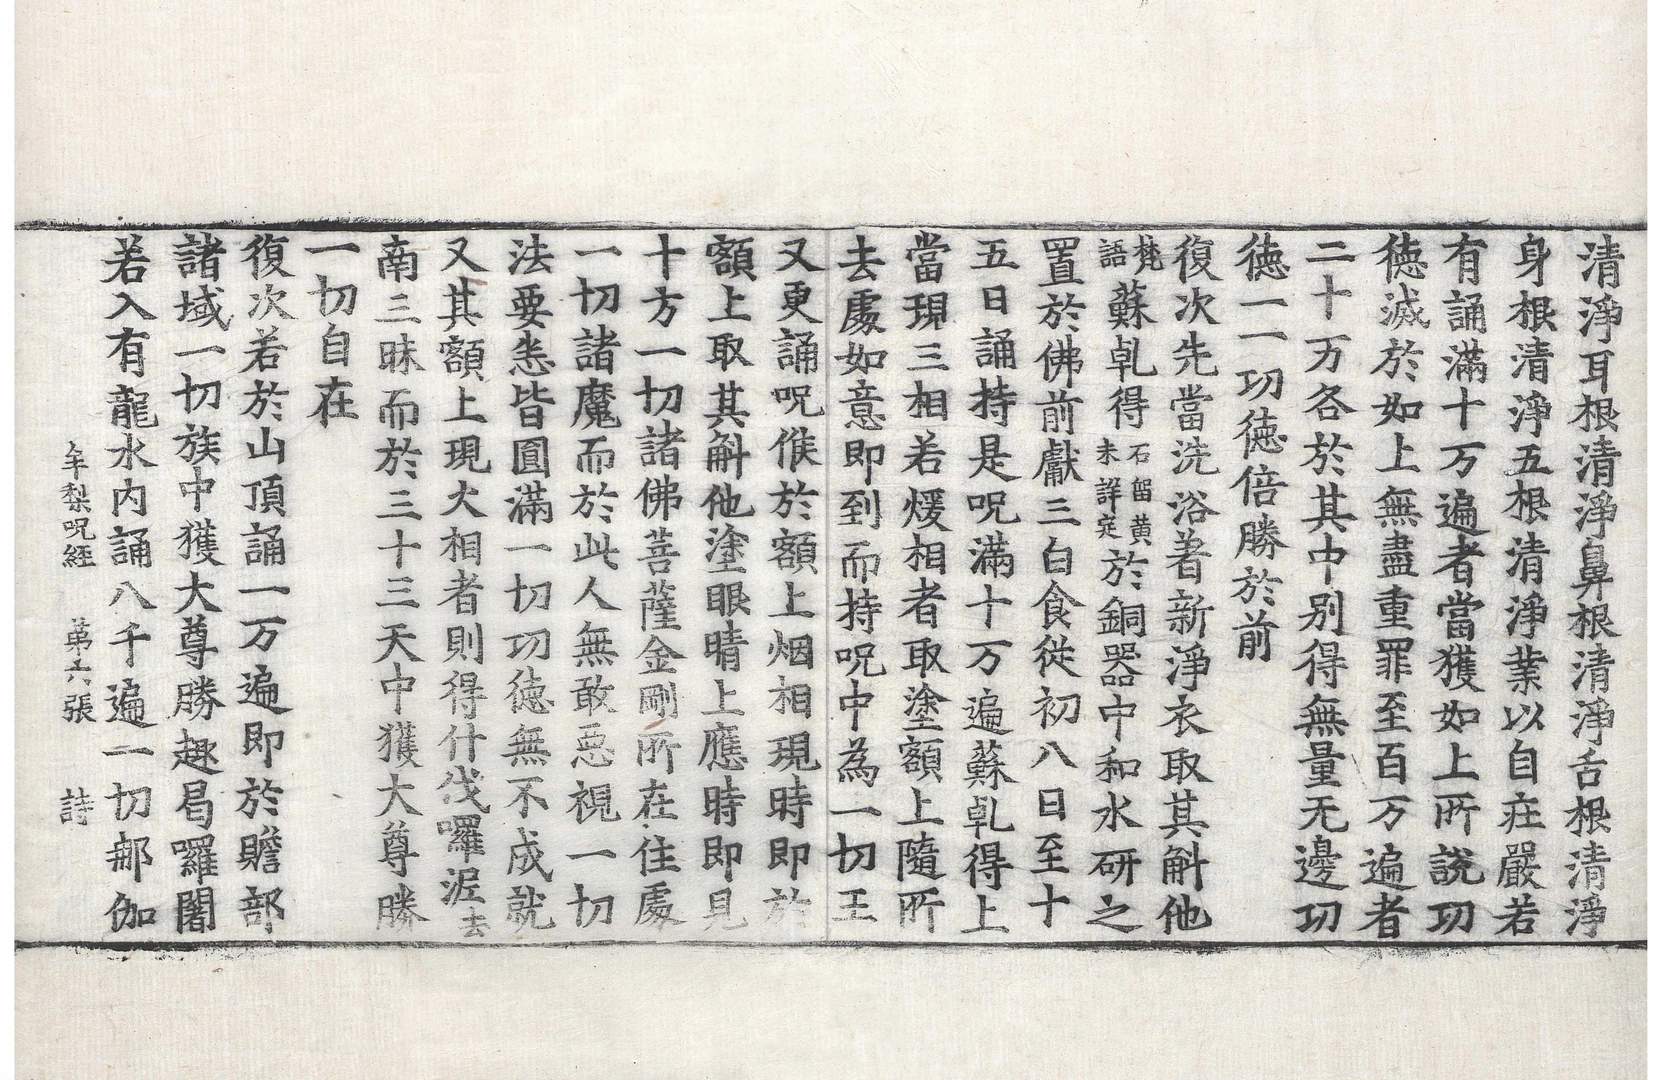 清淨耳根清淨鼻根清淨舌根清淨
身根清淨五根清淨業以自疘嚴若
有誦滿十万遍者當獲如上所說功
德滅於如上無盡重罪至百万遍者
二十万各於其中别得無量无邊功
德一一功德倍勝於前
復次先當洗浴著新淨衣取其斛他
梵語蘇乹得石留黄未詳㝎於銅器中和水研之
置於佛前獻三白食從初八日至十
五日誦持是呪滿十万遍蘇乹得上
當現三相若煖相者取塗額上隨所
去處如意即到而持呪中為一切王
又更誦呪候於額上烟相現時即於
額上取其斛他塗眼睛上應時即見
十方一切諸佛菩薩金剛所在住處
一切諸魔而於此人無敢惡視一切
法要悉皆圓滿一切功德無不成就
又其額上現火相者則得什伐囉泥去
南三昧而於三十三天中獲大尊勝
一切自在
復次若於山頂誦一万遍即於贍部
諸域一切族中獲大尊勝趣曷囉闍
若入有龍水内誦八千遍一切那伽
牟梨呪經 第六張 詩